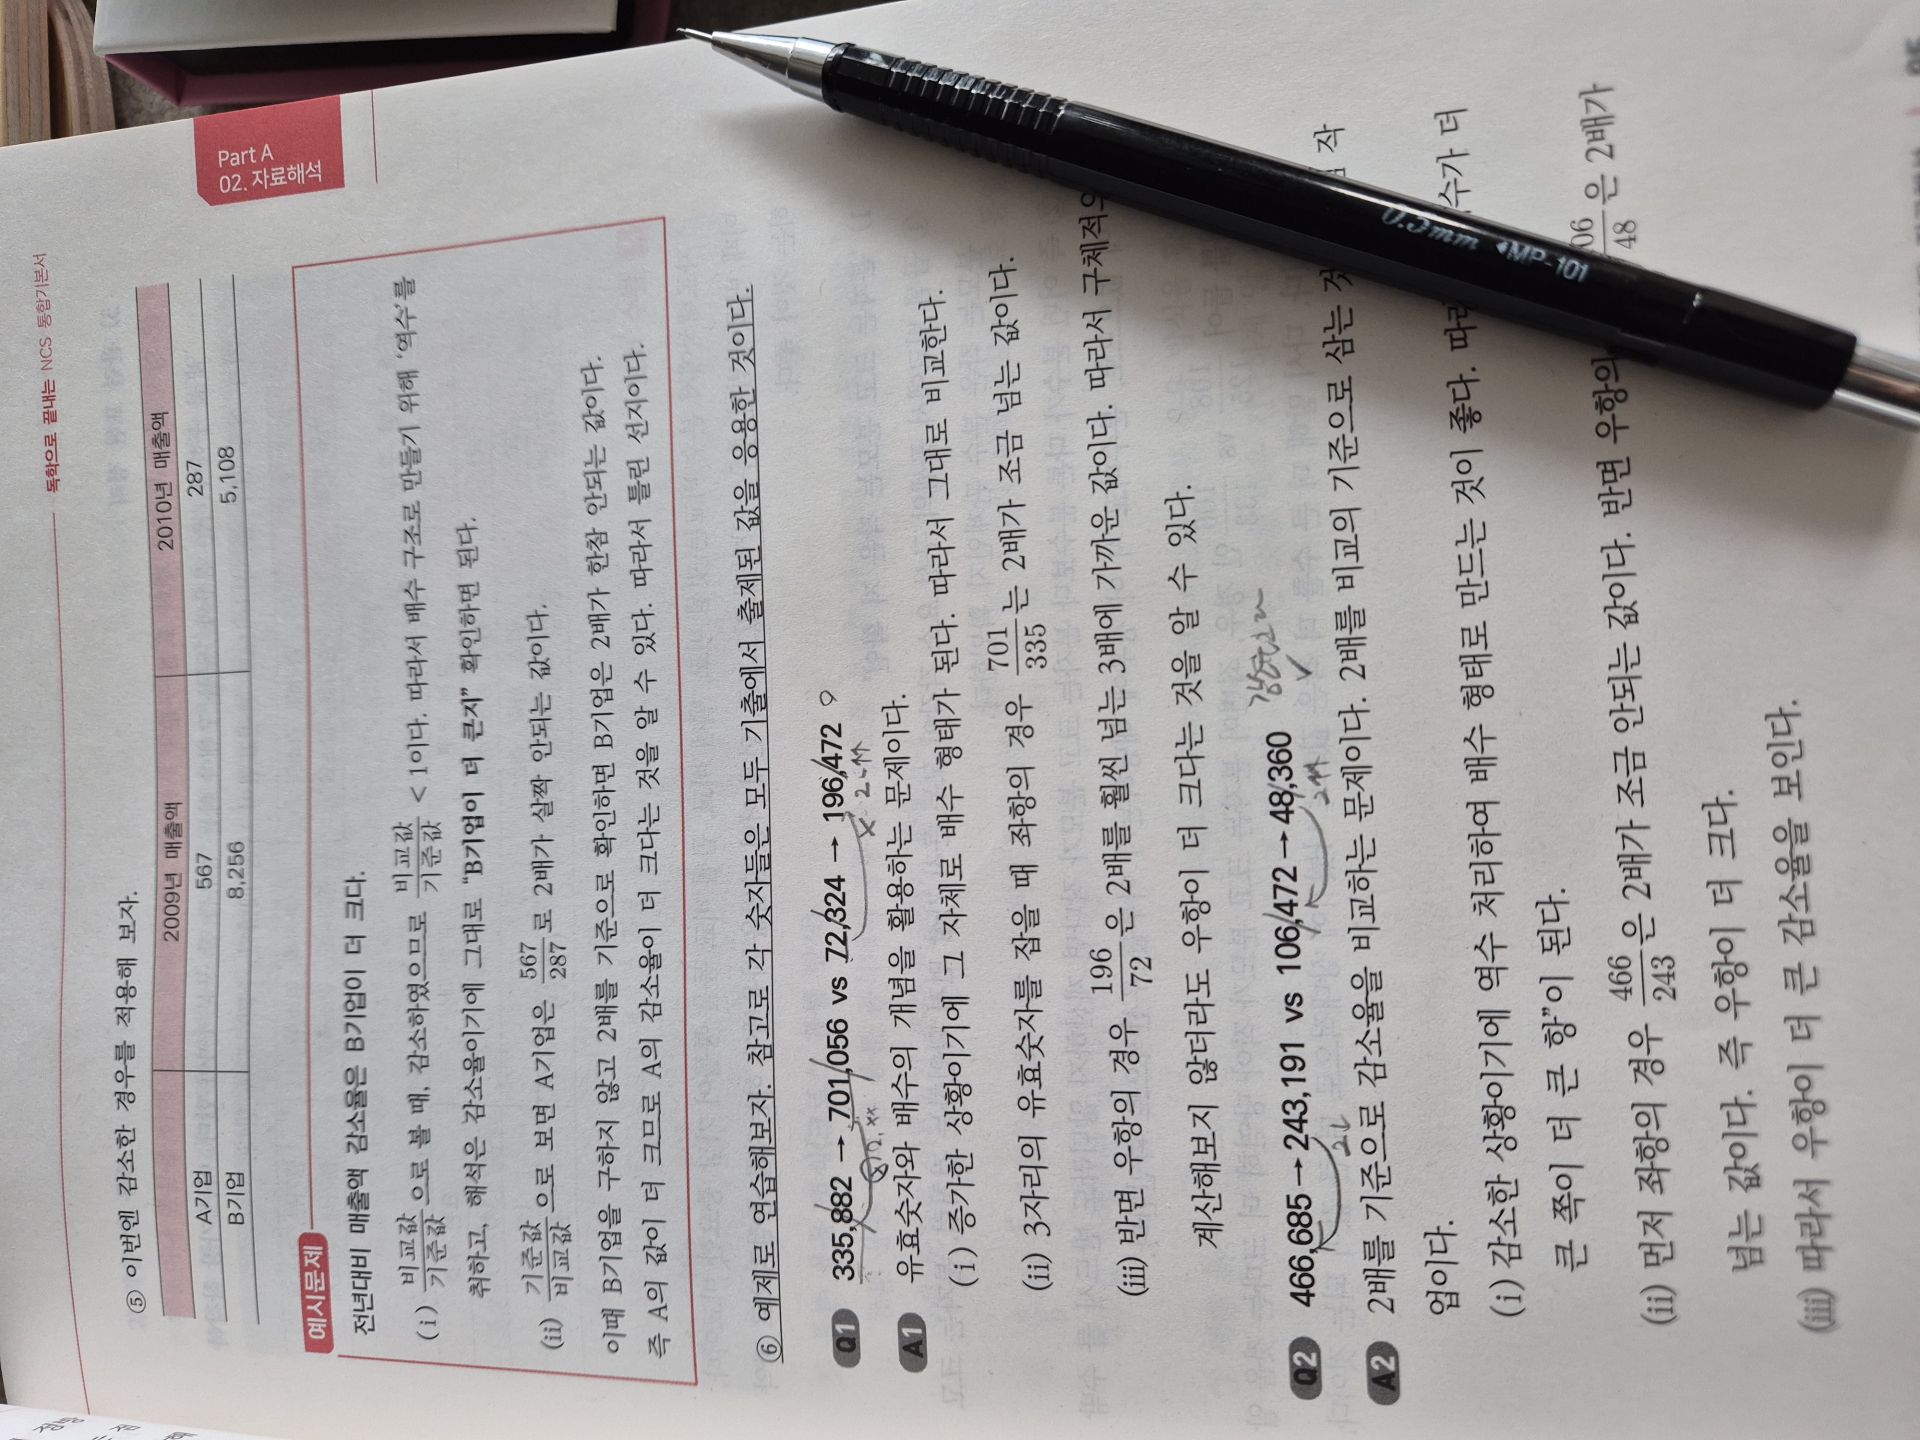 독학으로 끝내는 NCS 통합기본서
Part A
02. 자료해석
⑤ 이번엔 감소한 경우를 적용해 보자.
2009년 매출액 2010년 매출액
A기업 567 287
B기업 8,256 5,108
예시문제
전년대비 매출액 감소율은 B기업이 더 크다.
(i) 비교값/기준값 으로 볼 때, 감소하였으므로 비교값/기준값 < 1이다. 따라서 배수 구조로 만들기 위해 '역수'를
취하고, 해석은 감소율이기에 그대로 "B기업이 더 큰지" 확인하면 된다.
(ii) 기준값/비교값 으로 보면 A기업은 567/287 로 2배가 살짝 안되는 값이다.
이때 B기업을 구하지 않고 2배를 기준으로 확인하면 B기업은 2배가 한참 안되는 값이다.
즉 A의 값이 더 크므로 A의 감소율이 더 크다는 것을 알 수 있다. 따라서 틀린 선지이다.
⑥ 예제로 연습해보자. 참고로 각 숫자들은 모두 기출에서 출제된 값을 응용한 것이다.
Q1 335,882 → 701,056 vs 72,324 → 196,472
A1 유효숫자와 배수의 개념을 활용하는 문제이다.
(i) 증가한 상황이기에 그 자체로 배수 형태가 된다. 따라서 그대로 비교한다.
(ii) 3자리의 유효숫자를 잡을 때 좌항의 경우 701/335 는 2배가 조금 넘는 값이다.
(iii) 반면 우항의 경우 196/72 은 2배를 훨씬 넘는 3배에 가까운 값이다. 따라서 구체적으
계산해보지 않더라도 우항이 더 크다는 것을 알 수 있다.
Q2 466,685 → 243,191 vs 106,472 → 48,360
A2 2배를 기준으로 감소율을 비교하는 문제이다. 2배를 비교의 기준으로 삼는 것 작
업이다.
(i) 감소한 상황이기에 역수 처리하여 배수 형태로 만드는 것이 좋다. 따라 수가 더
큰 쪽이 더 큰 항"이 된다.
(ii) 먼저 좌항의 경우 466/243 은 2배가 조금 안되는 값이다. 반면 우항의 06/48 은 2배가
넘는 값이다. 즉 우항이 더 크다.
(iii) 따라서 우항이 더 큰 감소율을 보인다.
0.5mm MP-101